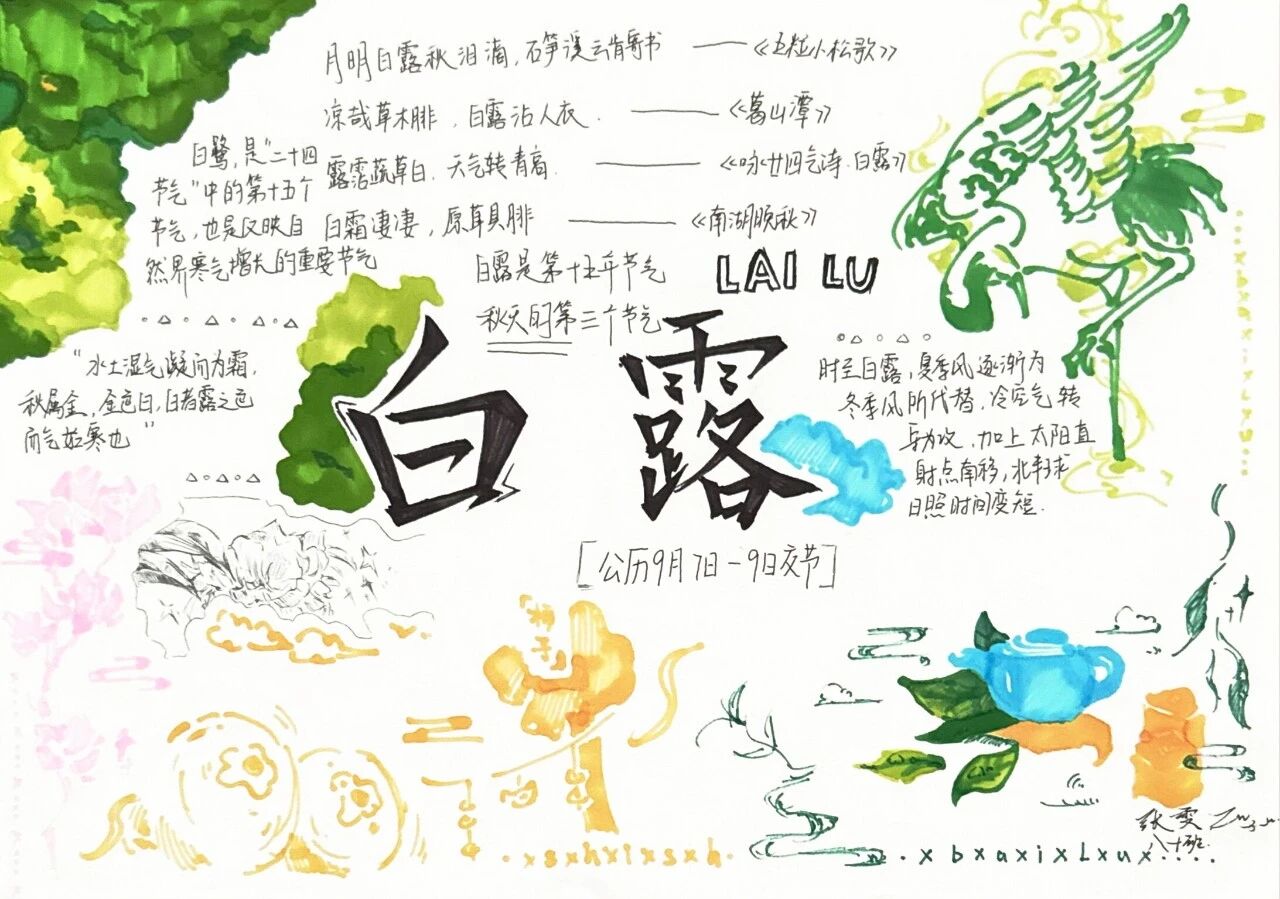 月明白露秋泪滴，石笋溪云肯寄书 ——《五粒小松歌》
凉哉草木腓，白露沾人衣. ——《葛山潭》
露沾蔬草白，天气转青高. ——《咏廿四气诗·白露》
白霜凄凄，原草具腓 ——《南湖晚秋》
白鹭，是"二十四
节气"中的第十五个
节气，也是反映自
然界寒气增长的重要节气
白露是第十五个节气
秋天的第三个节气
LAI LU
白露
"水土湿气凝而为霜，
秋属金，金色白，白者露之色
而气始寒也"
时至白露，夏季风逐渐为
冬季风所代替，冷空气转
守为攻，加上太阳直
射点南移，北半球
日照时间变短.
[公历9月7日-9日交节]
·xbxaxixLxux···
·xsxhxixsxh·
·xbxaxixLxux····
张雯
八十班